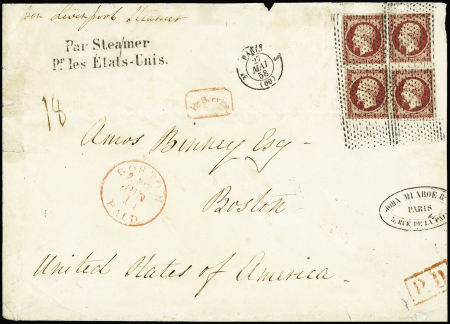 Liverpool Steamer
Par Steamer
Pr. les États-Unis.
18
PARIS
MAI
58
(60)
Amos Binney Esq
Boston
United States of America.
BOSTON
JUN
PAID
JOHN MUNROE
PARIS
5, RUE DE LA PAIX
P.D.